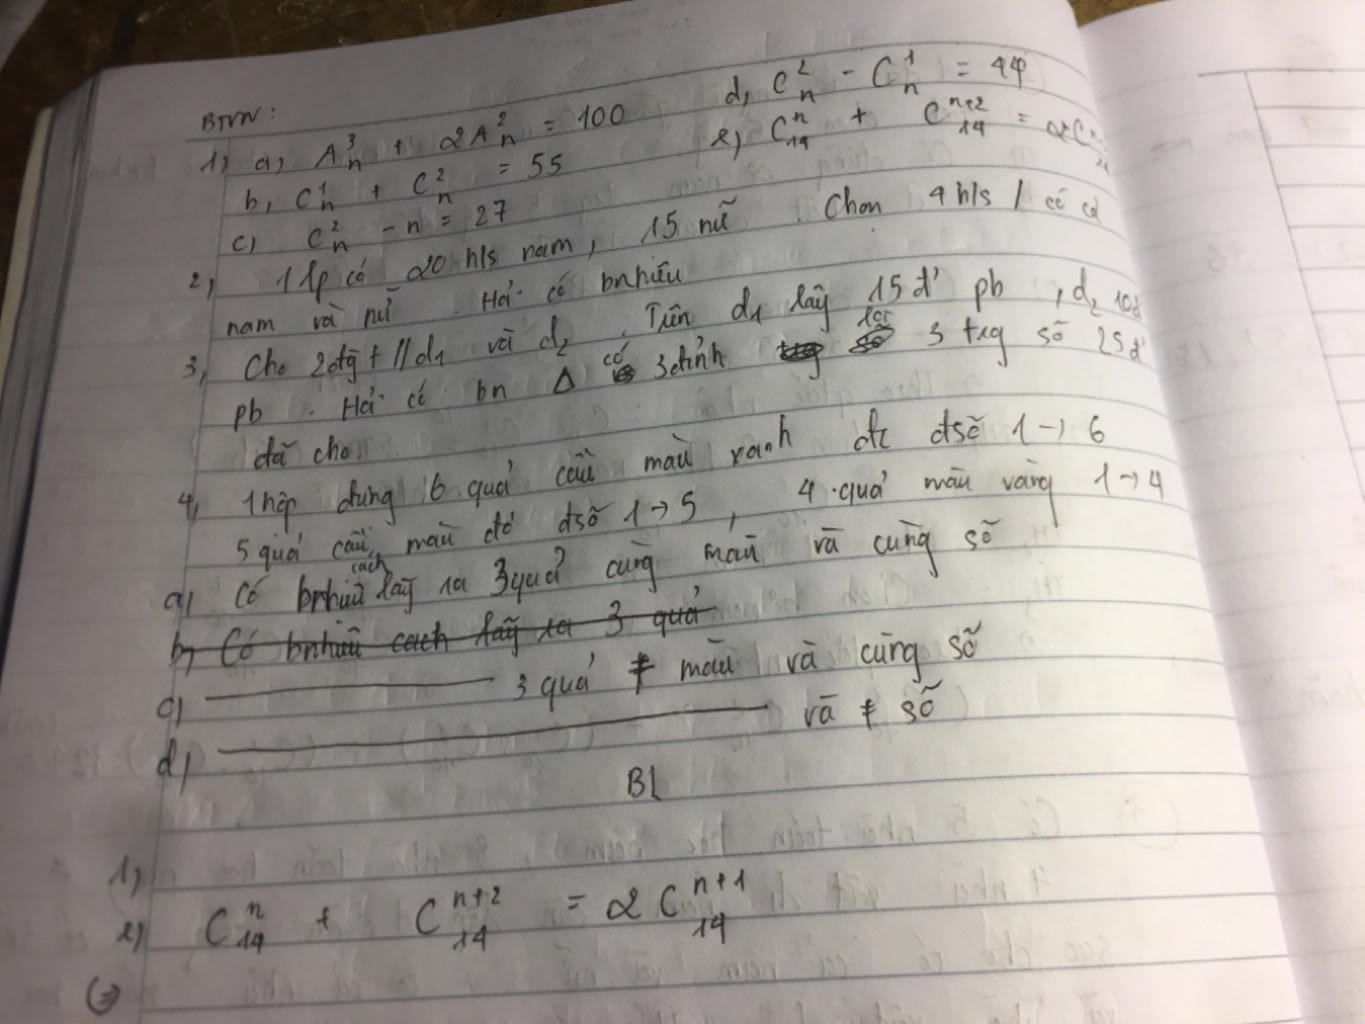 BTVN:
1) a, A³ₙ + 2A²ₙ = 100 d, C²ₙ - C¹ₙ = 44
b, C¹ₙ + C²ₙ = 55 e, Cⁿ₁₄ + Cⁿ⁺²₁₄ = 2Cⁿ
c, C²ₙ - n = 27
2, 1 lp có 20 h/s nam, 15 nữ. Chọn 4 h/s / có cả
nam và nữ. Hỏi có bnhiêu
3, Cho 2 đg t // d₁ và d₂. Trên d₁ lấy 15 đ' pb, d₂ 10đ'
pb. Hỏi có bn Δ có 3 đỉnh lấy 3 trg số 25 đ'
đã cho
4, 1 hộp đựng 6 quả cầu màu xanh đc đsố 1 → 6
5 quả cầu màu đỏ đsố 1 → 5, 4 quả màu vàng 1 → 4
a, Có bnhiêu cách lấy ra 3 quả cùng màu và cùng số
b, Có bnhiêu cách lấy ra 3 quả
c, 3 quả ≠ màu và cùng số
d, và ≠ số
BL
1,
e) Cⁿ₁₄ + Cⁿ⁺²₁₄ = 2Cⁿ⁺¹₁₄
(=)